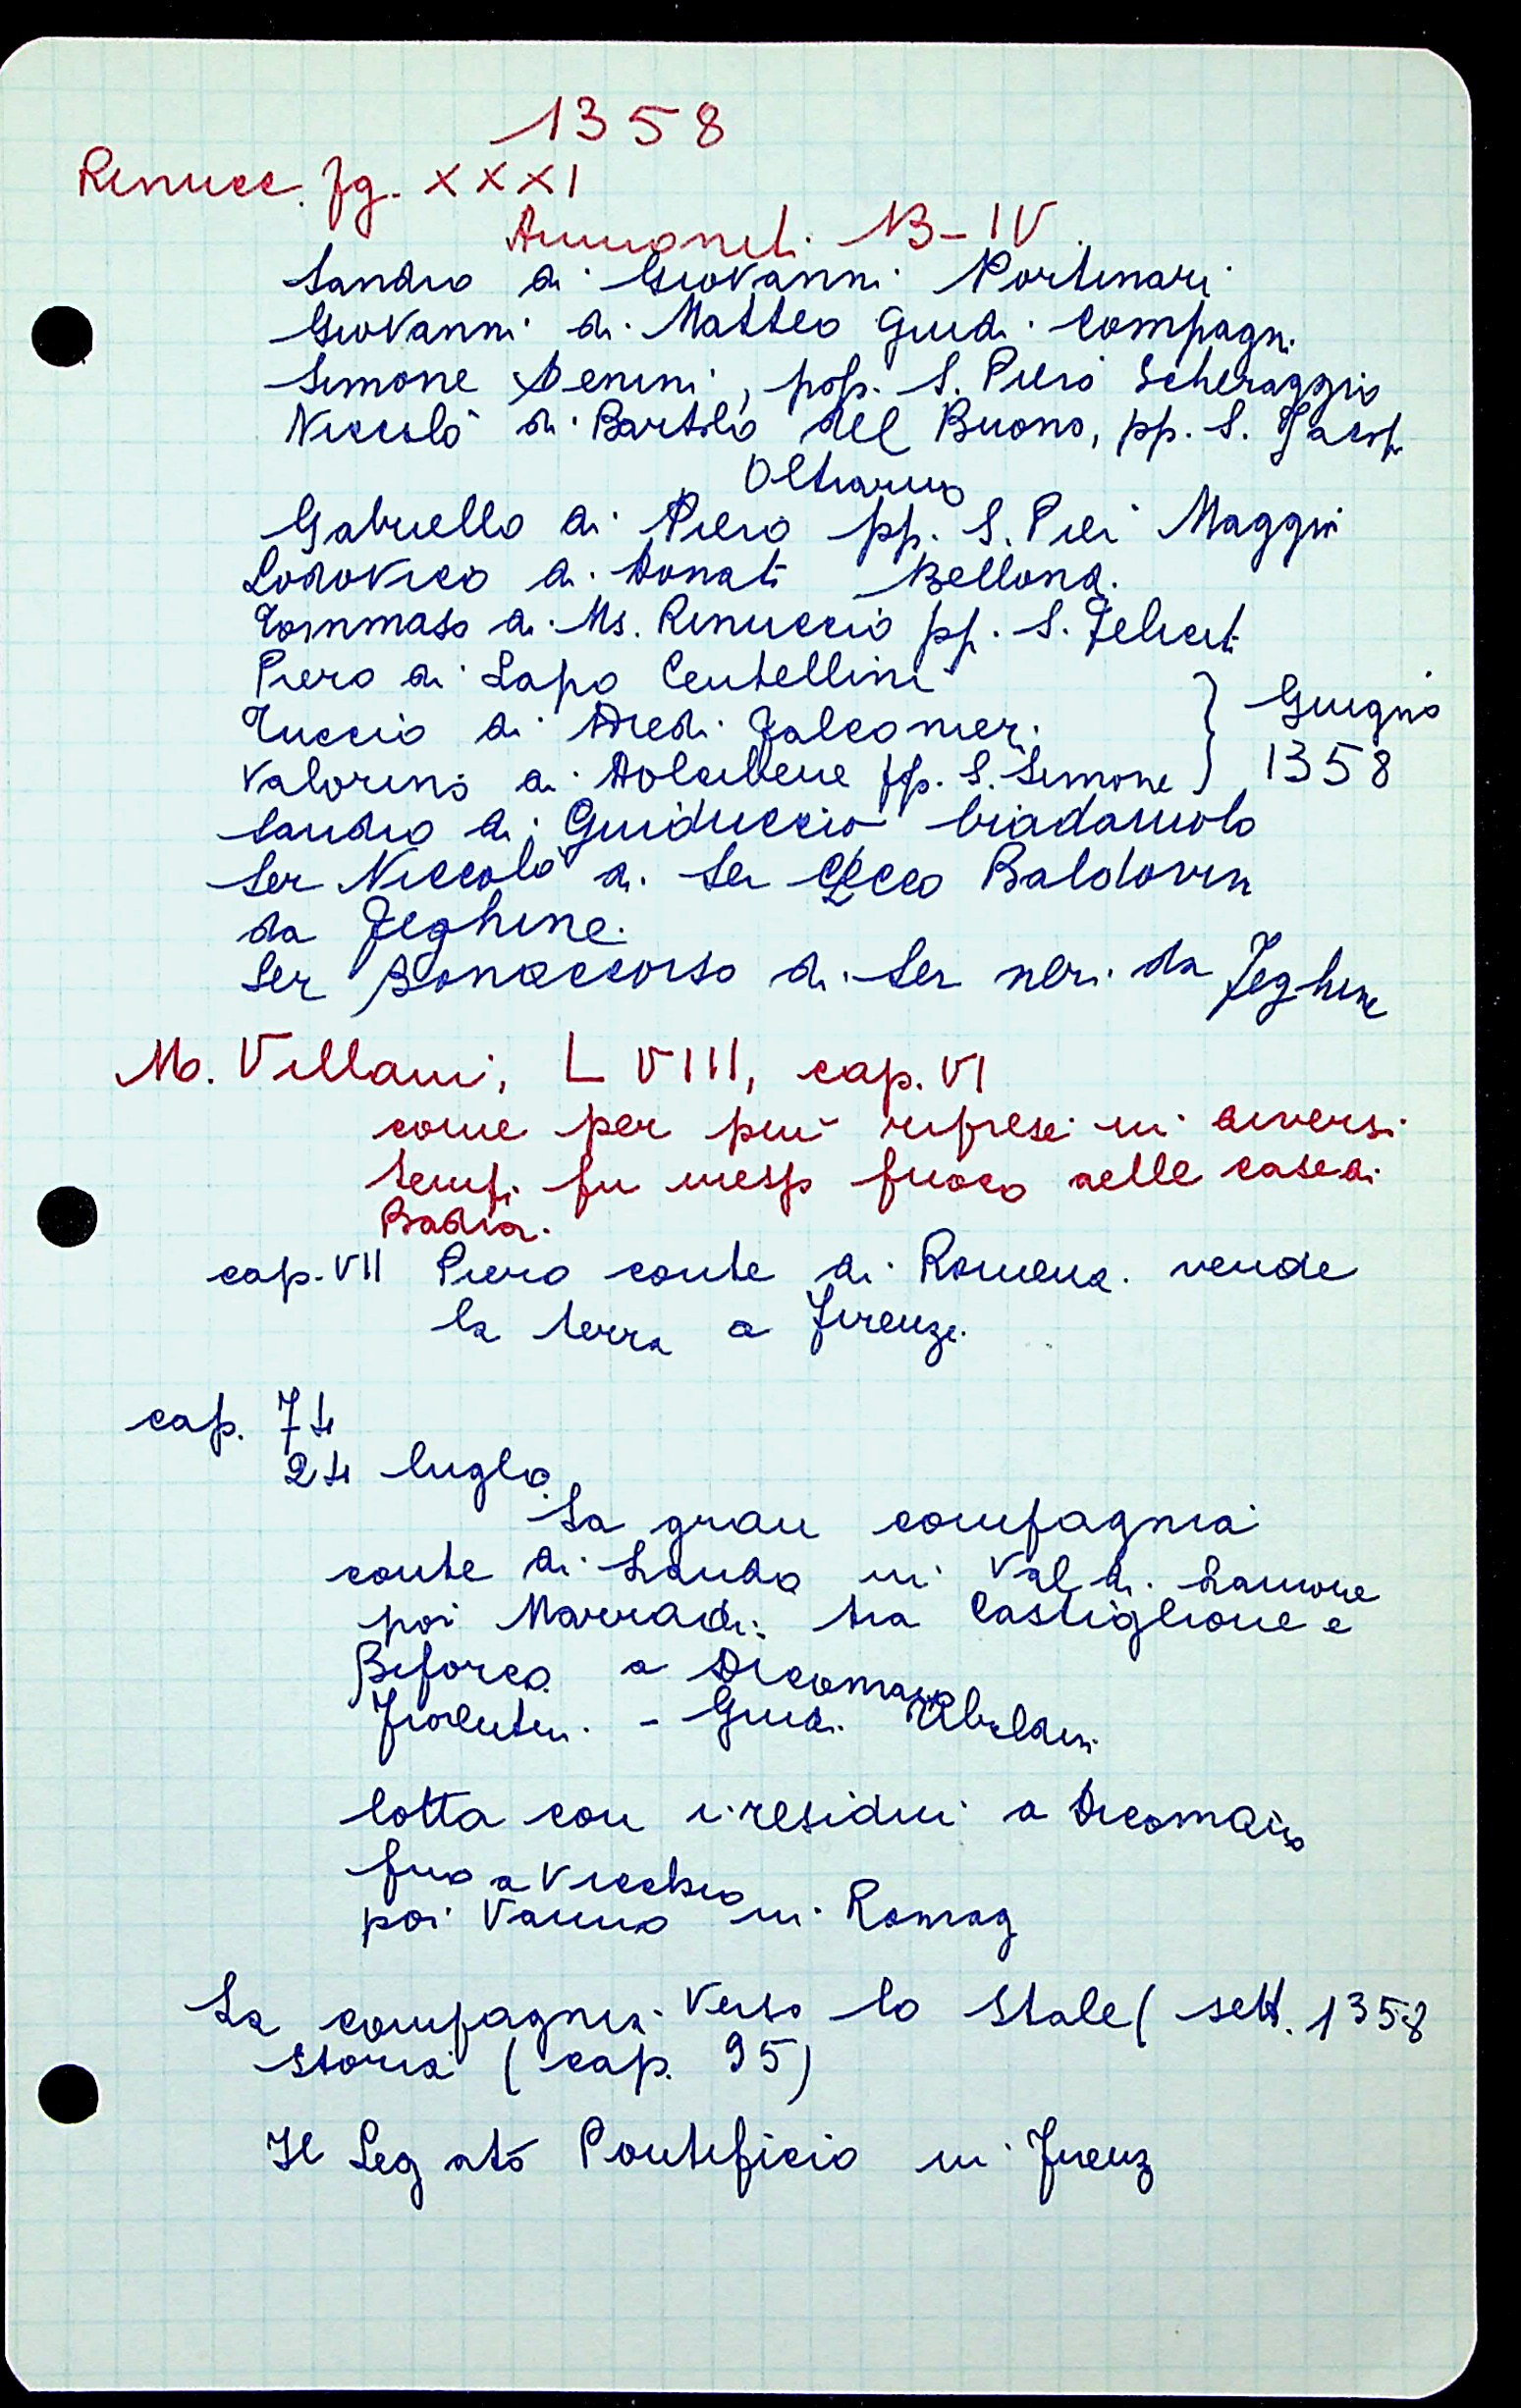 1358
Rinucc. pg. XXXI
Ammoniti. 13-IV.
Sandro di Giovanni Portinari
Giovanni di Matteo Guidi Compagni
Simone Benini, pop. S. Piero Scheraggio
Niccolò di Bartolo del Buono, pp. S. Jacop
Oltrarno
Gabriello di Piero pp. S. Pier Maggio
Lodovico di Donati Bellond.
Tommaso di Ms. Rinuccio pp. S. Felicit
Piero di Lapo Centellini
Tuccio di Dredi Falconieri
Valorino di Dolcibene pp. S. Simone } Giugno 1358
Sandro di Guiduccio biadaiuolo
Ser Niccolò di Ser Cecco Baldovin
da Feghine.
Ser Bonaccorso di Ser neri da Feghine
M. Villani, L VIII, cap. VI
come per più riprese in diversi
tempi fu messo fuoco nelle case di
Badia.
cap. VII Piero conte di Romena vende
la terra a Firenze.
cap. 74
24 luglio
La gran compagnia
conte di Lando in Val di Lamone
poi Marradi: tra Castiglione e
Biforco a Dicomano
Fiorentin. - Guidi Ubaldini
lotta con i residui a Dicomano
fino a Vicchio
poi Vanno in Romag
La compagnia verso lo Stale (sett. 1358
storia (cap. 95)
Il Legato Pontificio in Firenz